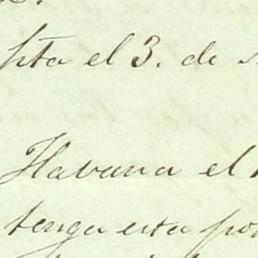 hta el 3. de
Habana el
tenga esta por